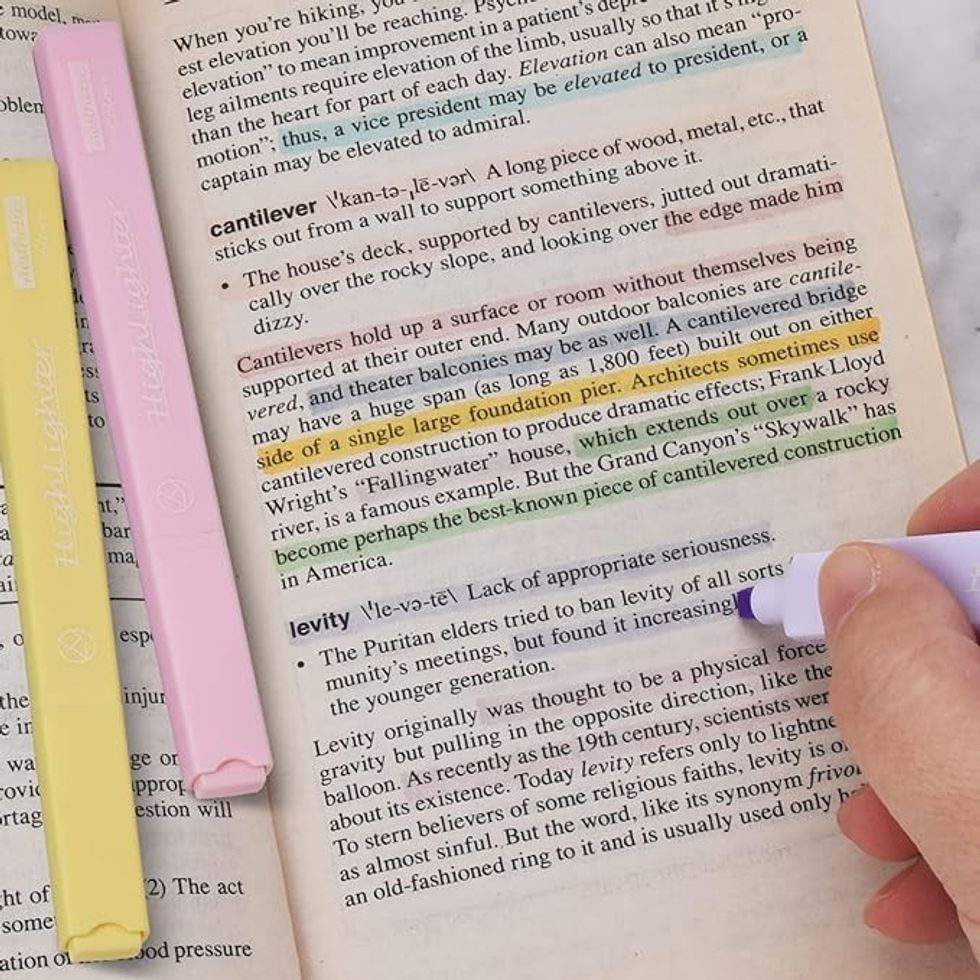 When you're hiking, you
est elevation you'll be reaching.
elevation" to mean improvement in a patient's
leg ailments require elevation of the limb, usually so that it's
than the heart for part of each day. Elevation can also mean "pro-
motion"; thus, a vice president may be elevated to president, or a
captain may be elevated to admiral.
cantilever \ˈkan-tə-ˌlē-vər\ A long piece of wood, metal, etc., that
sticks out from a wall to support something above it.
• The house's deck, supported by cantilevers, jutted out dramati-
cally over the rocky slope, and looking over the edge made him
dizzy.
Cantilevers hold up a surface or room without themselves being
supported at their outer end. Many outdoor balconies are cantile-
vered, and theater balconies may be as well. A cantilevered bridge
may have a huge span (as long as 1,800 feet) built out on either
side of a single large foundation pier. Architects sometimes use
cantilevered construction to produce dramatic effects; Frank Lloyd
Wright's "Fallingwater" house, which extends out over a rocky
river, is a famous example. But the Grand Canyon's "Skywalk" has
become perhaps the best-known piece of cantilevered construction
in America.
levity \ˈle-və-tē\ Lack of appropriate seriousness.
• The Puritan elders tried to ban levity of all sorts
munity's meetings, but found it increasingl
the younger generation.
Levity originally was thought to be a physical force
gravity but pulling in the opposite direction, like the
balloon. As recently as the 19th century, scientists wer
about its existence. Today levity refers only to lightne
To stern believers of some religious faiths, levity is o
as almost sinful. But the word, like its synonym frivol
an old-fashioned ring to it and is usually used only
Highlighter
Highlighter
model,
bar
esp
injur
ge or
approp
estion will
ght of
(2) The act
some
ation of
ood pressure